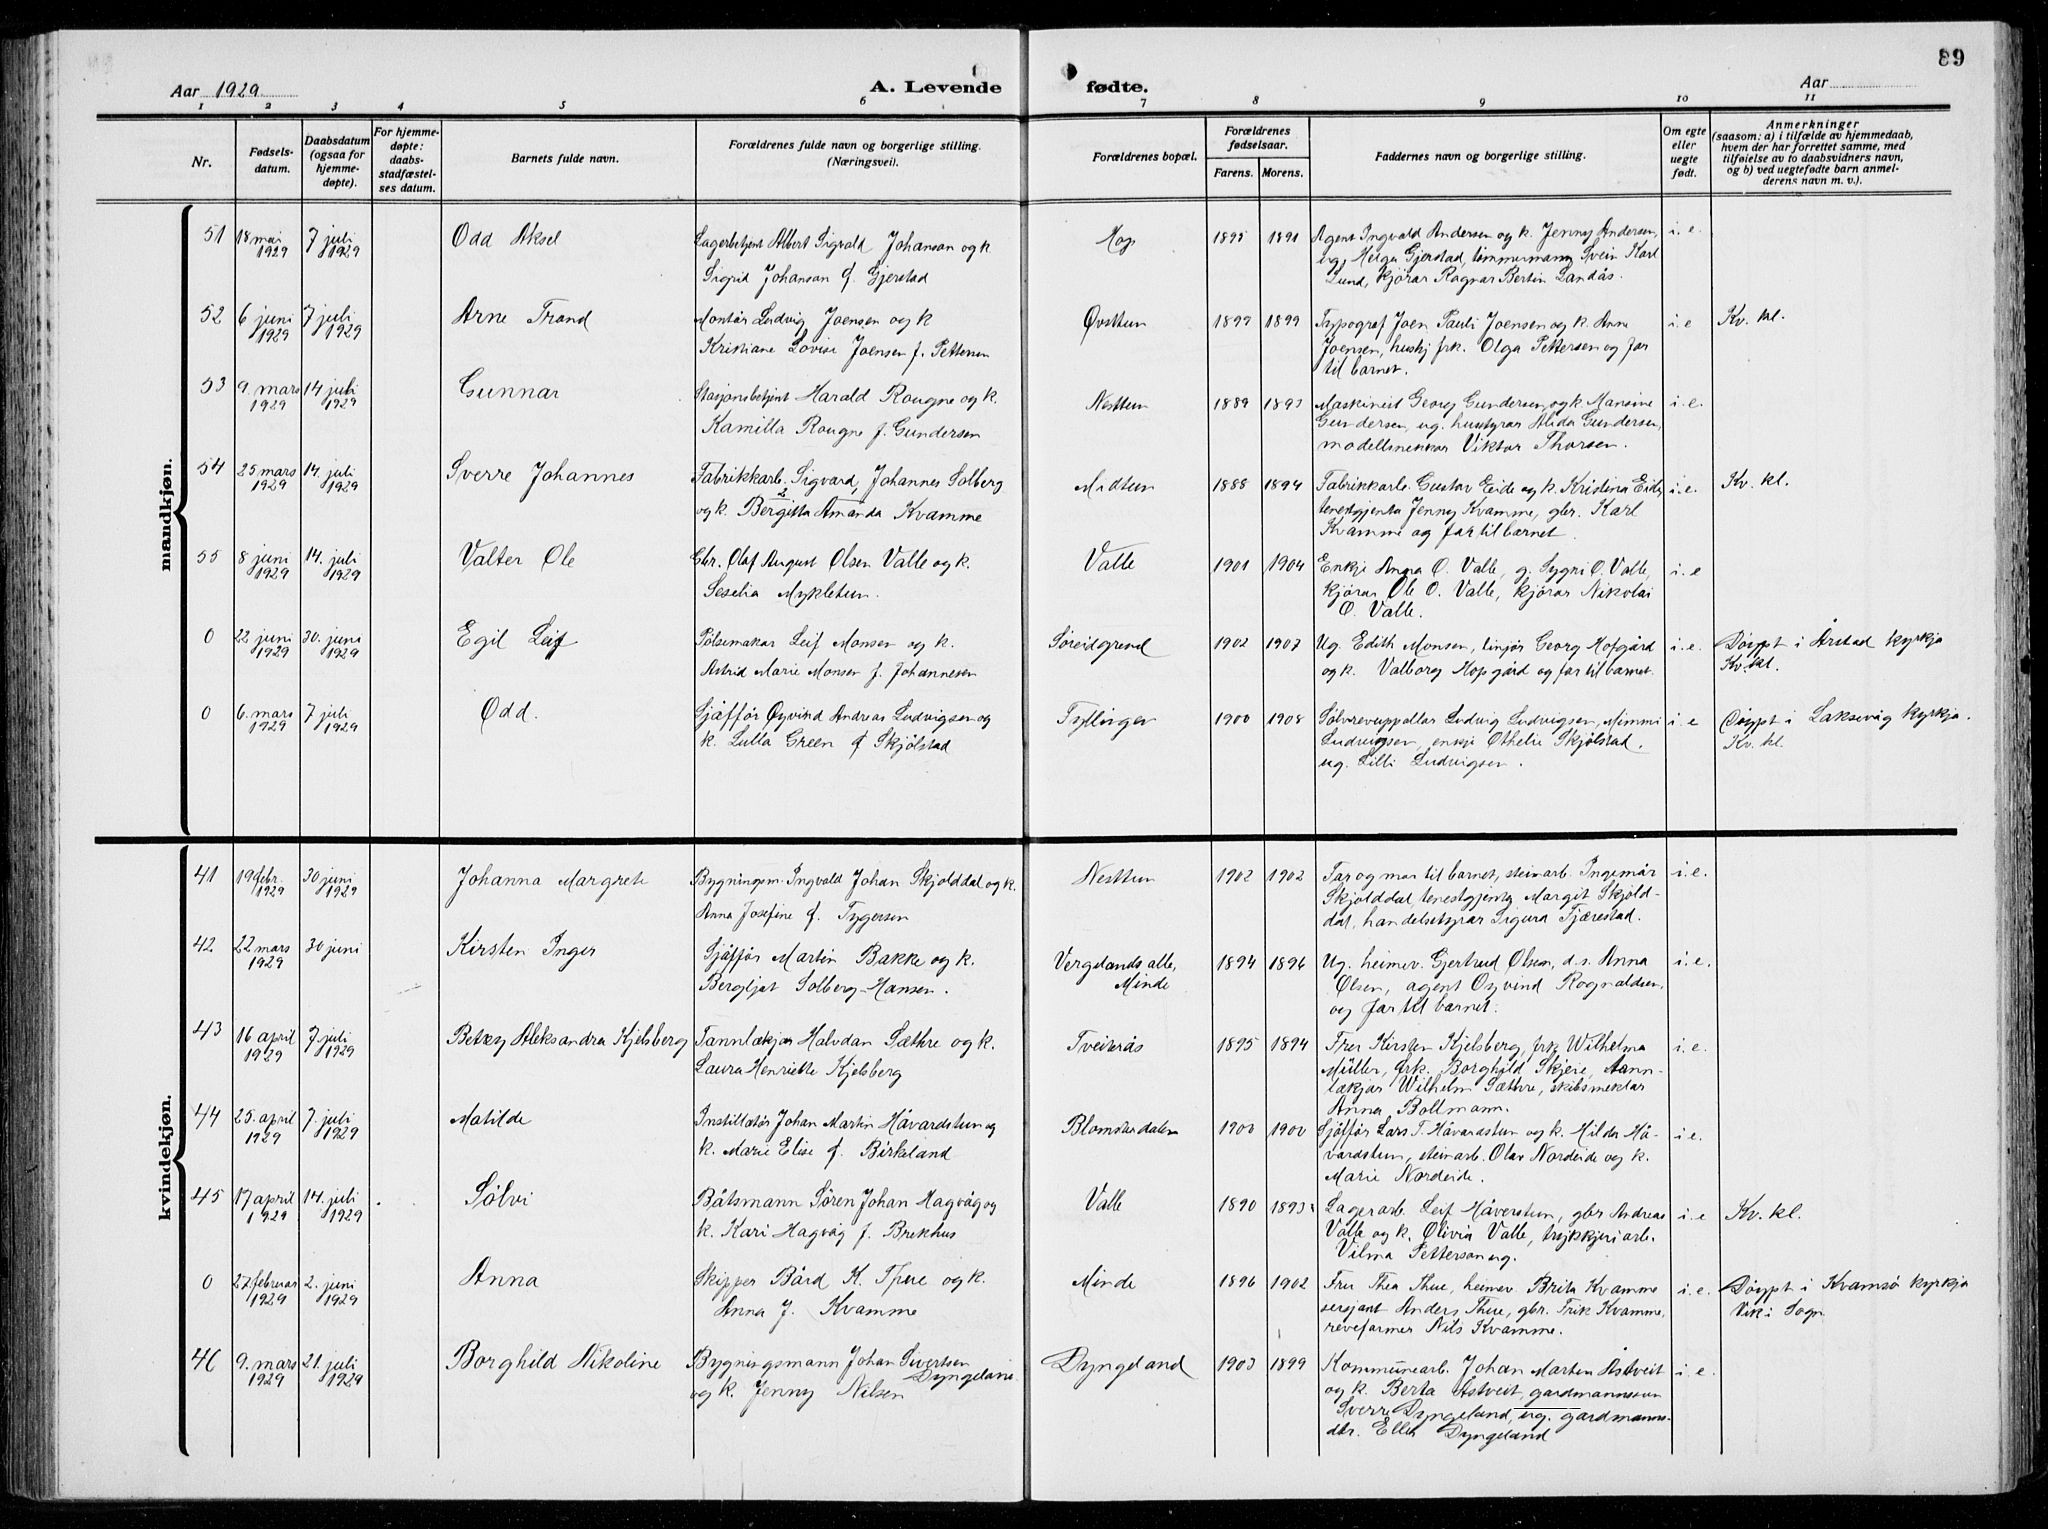 89
Aar 1929 A. Levende fødte. Aar
1 2 3 4 5 6 7 8 9 10 11
Nr.
Fødsels-
datum.
Daabsdatum
(ogsaa for
hjemme-
døpte).
For hjemme-
døpte:
daabs-
stadfæstel-
ses datum.
Barnets fulde navn.
Forældrenes fulde navn og borgerlige stilling.
(Næringsvei).
Forældrenes bopæl.
Forældrenes
fødselsaar.
Farens. Morens.
Faddernes navn og borgerlige stilling.
Om egte
eller
uegte
født.
Anmerkninger
(saasom: a) i tilfælde av hjemmedaab,
hvem der har forrettet samme, med
tilføielse av to daabsvidners navn,
og b) ved uegtefødte barn anmel-
derens navn m. v.).
mandkjøn.
51 18 mai 1929 7 juli 1929 Odd Aksel
Lagerbetjent Albert Sigvald Johanson og k.
Sigrid Johanson f. Gjerstad
Hop 1895 1891
Agent Ingvald Andersen og k. Jenny Andersen,
ug. Helga Gjerstad, timmermann Svein Karl
Lund, kjörar Ragnar Bertin Landås.
i. e.
52 6 juni 1929 7 juli 1929 Arne Trond
Montör Ludvig Joensen og k
Kristiane Lovise Joensen f. Pettersen
Øvsttun 1899 1899
Typograf Joen Pauli Joensen og k. Anna
Joensen, hushj frk. Olga Pettersen og far
til barnet.
i. e Kv. kl.
53 9. mars 1929 14 juli 1929 Gunnar
Stasjonsbetjent Harald Rougne og k.
Kamilla Rougne f. Gundersen
Nesttun 1889 1893
Maskinist Georg Gundersen og k. Mansine
Gundersen, ug. hustyrar Alida Gundersen,
modellsnekkar Viktor Thorsen.
i. e.
54 25 mars 1929 14. juli 1929 Sverre Johannes
Fabrikkarb. Sigvard, Johannes Solberg
og k. Bergitta Amanda Kvamme
Midtun 1888 1894
Fabrikkarb. Gustav Eide og k. Kristina Eide,
tenestgjenta Jenny Kvamme, gbr. Karl
Kvamme og far til barnet.
i. e. Kv. kl.
55 8 juni 1929 14. juli 1929 Valter Ole
Gbr. Olaf August Olsen Valle og k.
Seselia Mykletun.
Valle 1901 1904
Enkje Anna O. Valle, g. Sygni O. Valle,
kjörar Ole O. Valle, kjörar Nikolai
O. Valle.
i. e
0 22 juni 1929 30. juni 1929 Egil Leif
Pölsemakar Leif Monsen og k.
Astrid Marie Monsen f. Johannesen
Söreidgrend 1902 1907
Ug. Edith Monsen, linjör Georg Hopgård
og k. Valborg Hopgård og far til barnet.
i. e. Döypt i Årstad kyrkja
Kv. kl.
0 6. mars 1929 7 juli 1929 Odd.
Sjåfför Øyvind Andreas Ludvigsen og
k. Lulla Green f Skjölstad
Tyllingen 1900 1908
Sölvrevuppallar Ludvig Ludvigsen, Mimmi
Ludvigsen, enkje Othelie Skjölstad.
ug. Lilli Ludvigsen.
i. e Döypt i Laksevåg kyrkja.
Kv. kl.
kvindekjøn.
41 19 febr. 1929 30 juni 1929 Johanna Margrete
Bygningsm. Ingvald Johan Skjolddal og k.
Anna Josefine f. Tygersen
Nesttun 1902 1902
Far og mor til barnet, steinarb. Ingemår
Skjölddal tenestgjenta Margit Skjöld-
dal, handelstyrar Sigurd Tjærestad.
i. e.
42 22 mars 1929 30 juni Kirsten Inger
Sjåfför Martin Bakke og k.
Bergljot Solberg-Hansen.
Vergelands alle,
Minde
1894 1896
Ug. heimev. Gjertrud Olsen, d. s. Anna
Olsen, agent Oyvind Rognaldsen,
og far til barnet.
i. e.
43 16 april 1929 7. juli 1929 Betzy Aleksandra Kjelsberg
Tannlækjar Halvdan Sæthre og k.
Laura Henriette Kjelsberg
Tveiterås 1895 1894
Fru Kirsten Kjelsberg, frk Wilhelma
Müller, frk. Borghild Skjeie, tann-
lækjar Wilhelm Sæthre, skibsmeklar
Anna Bollmann.
i. e.
44 25. april 1929 7. juli 1929 Matilde
Instillatör Johan Martin Håvardstun og
k. Marie Elise f. Birkeland
Blomsterdalen 1900 1900
Sjåfför Lars T. Håvardstun og k. Hilda Hå-
vardstun, steinarb. Olav Nordeide og k.
Marie Nordeide.
i. e.
45 17 april 1929 14. juli 1929 Sölvi
Båtsmann Sören Johan Hagvåg og
k. Kari Hagvåg f. Brekhus
Valle 1890 1893
Lagerarb. Leif Håverstun, gbr Andreas
Valle og k. Olivia Valle, trykkjeriarb.
Vilma Petterson ug.
i. e Kv. kl.
0 27. februar 1929 2. juni 1929 Anna
Skipper Bård K. Thue og k.
Anna f. Kvamme
Minde 1896 1902
Fru Thea Thue, heimev Brita Kvamme
sersjant Anders Thue, gbr. Erik Kvamme,
revefarmer Nils Kvamme.
i. e. Döypt i Kvamsö kyrkja
Vik i Sogn
46 9. mars 1929 21. juli 1929 Borghild Nikoline
Bygningsmann Johan Sivertsen
Dyngeland
og k. Jenny Nilsen
Dyngeland 1903 1899
Kommunearb. Johan Martin Åstveit
og k. Berta Åstveit, gardmannsson
Sverre Dyngeland, ug. gardmanns-
dtr. Ellen Dyngeland
i. e.